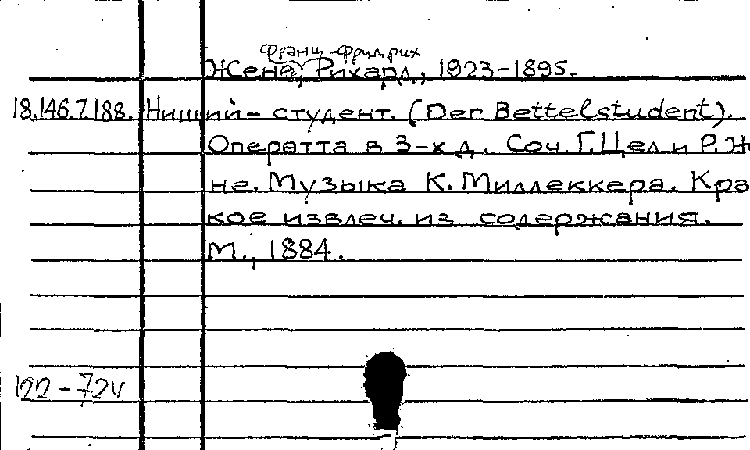 Франц Фридрих
Жене, Рихард, 1923-1895.
18.146.7.188. Нищий-студент. (Der Bettelstudent).
Оперетта в 3-х д. Соч. Г. Цел и Р. Ж
не. Музыка К. Миллеккера. Кра
кое извлеч. из содержания.
М., 1884.
122-724